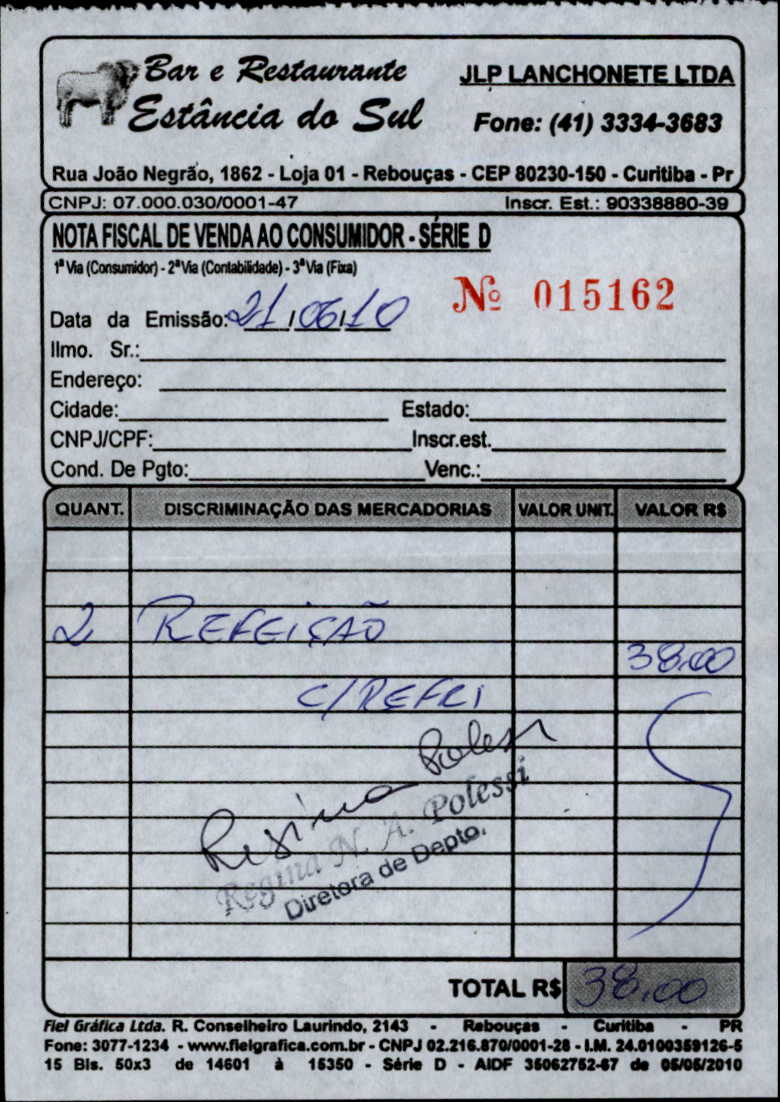 Bar e Restaurante
Estância do Sul
JLP LANCHONETE LTDA
Fone: (41) 3334-3683
Rua João Negrão, 1862 - Loja 01 - Rebouças - CEP 80230-150 - Curitiba - Pr
CNPJ: 07.000.030/0001-47 Inscr. Est.: 90338880-39
NOTA FISCAL DE VENDA AO CONSUMIDOR - SÉRIE D
1ª Via (Consumidor) - 2ª Via (Contabilidade) - 3ª Via (Fixa)
Nº 015162
Data da Emissão: 21/06/10
Ilmo. Sr.:
Endereço:
Cidade: Estado:
CNPJ/CPF: Inscr.est.
Cond. De Pgto: Venc.:
QUANT. DISCRIMINAÇÃO DAS MERCADORIAS VALOR UNIT. VALOR R$
2 REFEIÇÃO
38,00
C/REFRI
Regina Polessi
Regina N. A. Polessi
Diretora de Depto.
TOTAL R$ 38,00
Fiel Gráfica Ltda. R. Conselheiro Laurindo, 2143 - Rebouças - Curitiba - PR
Fone: 3077-1234 - www.fielgrafica.com.br - CNPJ 02.216.870/0001-28 - I.M. 24.0100359126-5
15 Bls. 50x3 de 14601 à 15350 - Série D - AIDF 35062752-67 de 05/05/2010